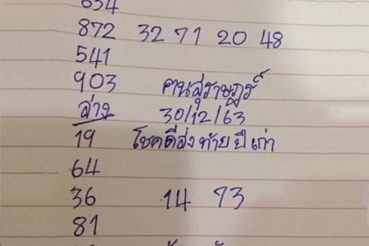 654
872 32 71 20 48
541
903 คนสุราษฎร์
ล่าง 30/12/63
19 โชคดีส่งท้ายปีเก่า
64
36 14 73
81